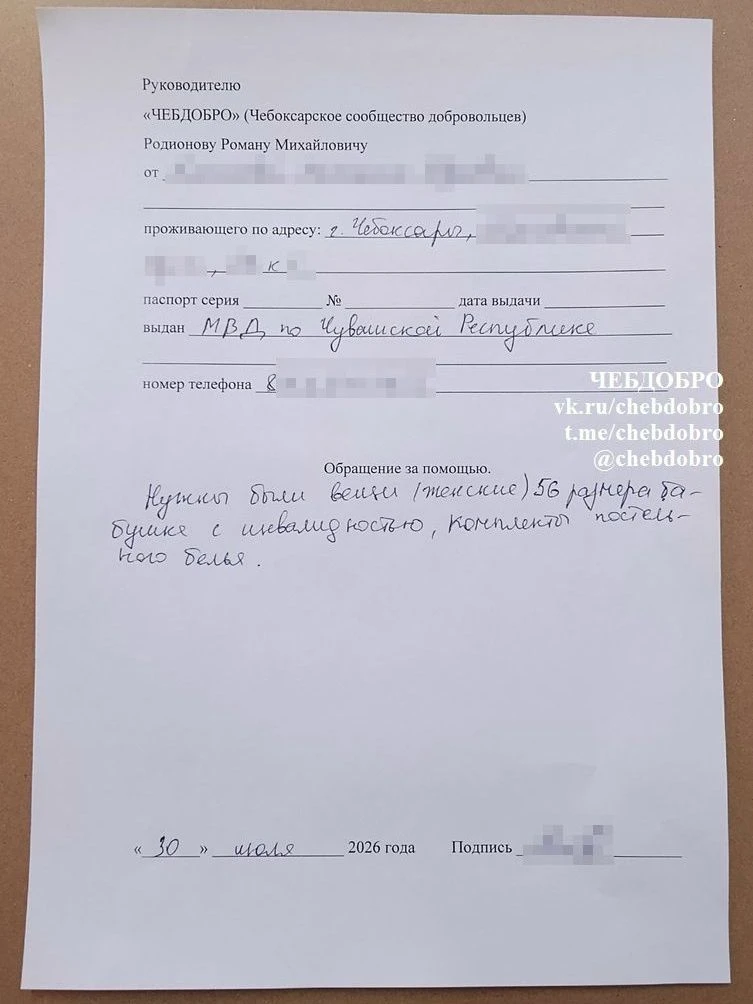 Руководителю
«ЧЕБДОБРО» (Чебоксарское сообщество добровольцев)
Родионову Роману Михайловичу
от
проживающего по адресу: г. Чебоксары,
, к
паспорт серия № дата выдачи
выдан МВД по Чувашской Республике
номер телефона 8
ЧЕБДОБРО
vk.ru/chebdobro
t.me/chebdobro
@chebdobro
Обращение за помощью.
Нужны были вещи (женские) 56 размера ба-
бушке с инвалидностью, комплекты постель-
ного белья.
« 30 » июля 2026 года Подпись